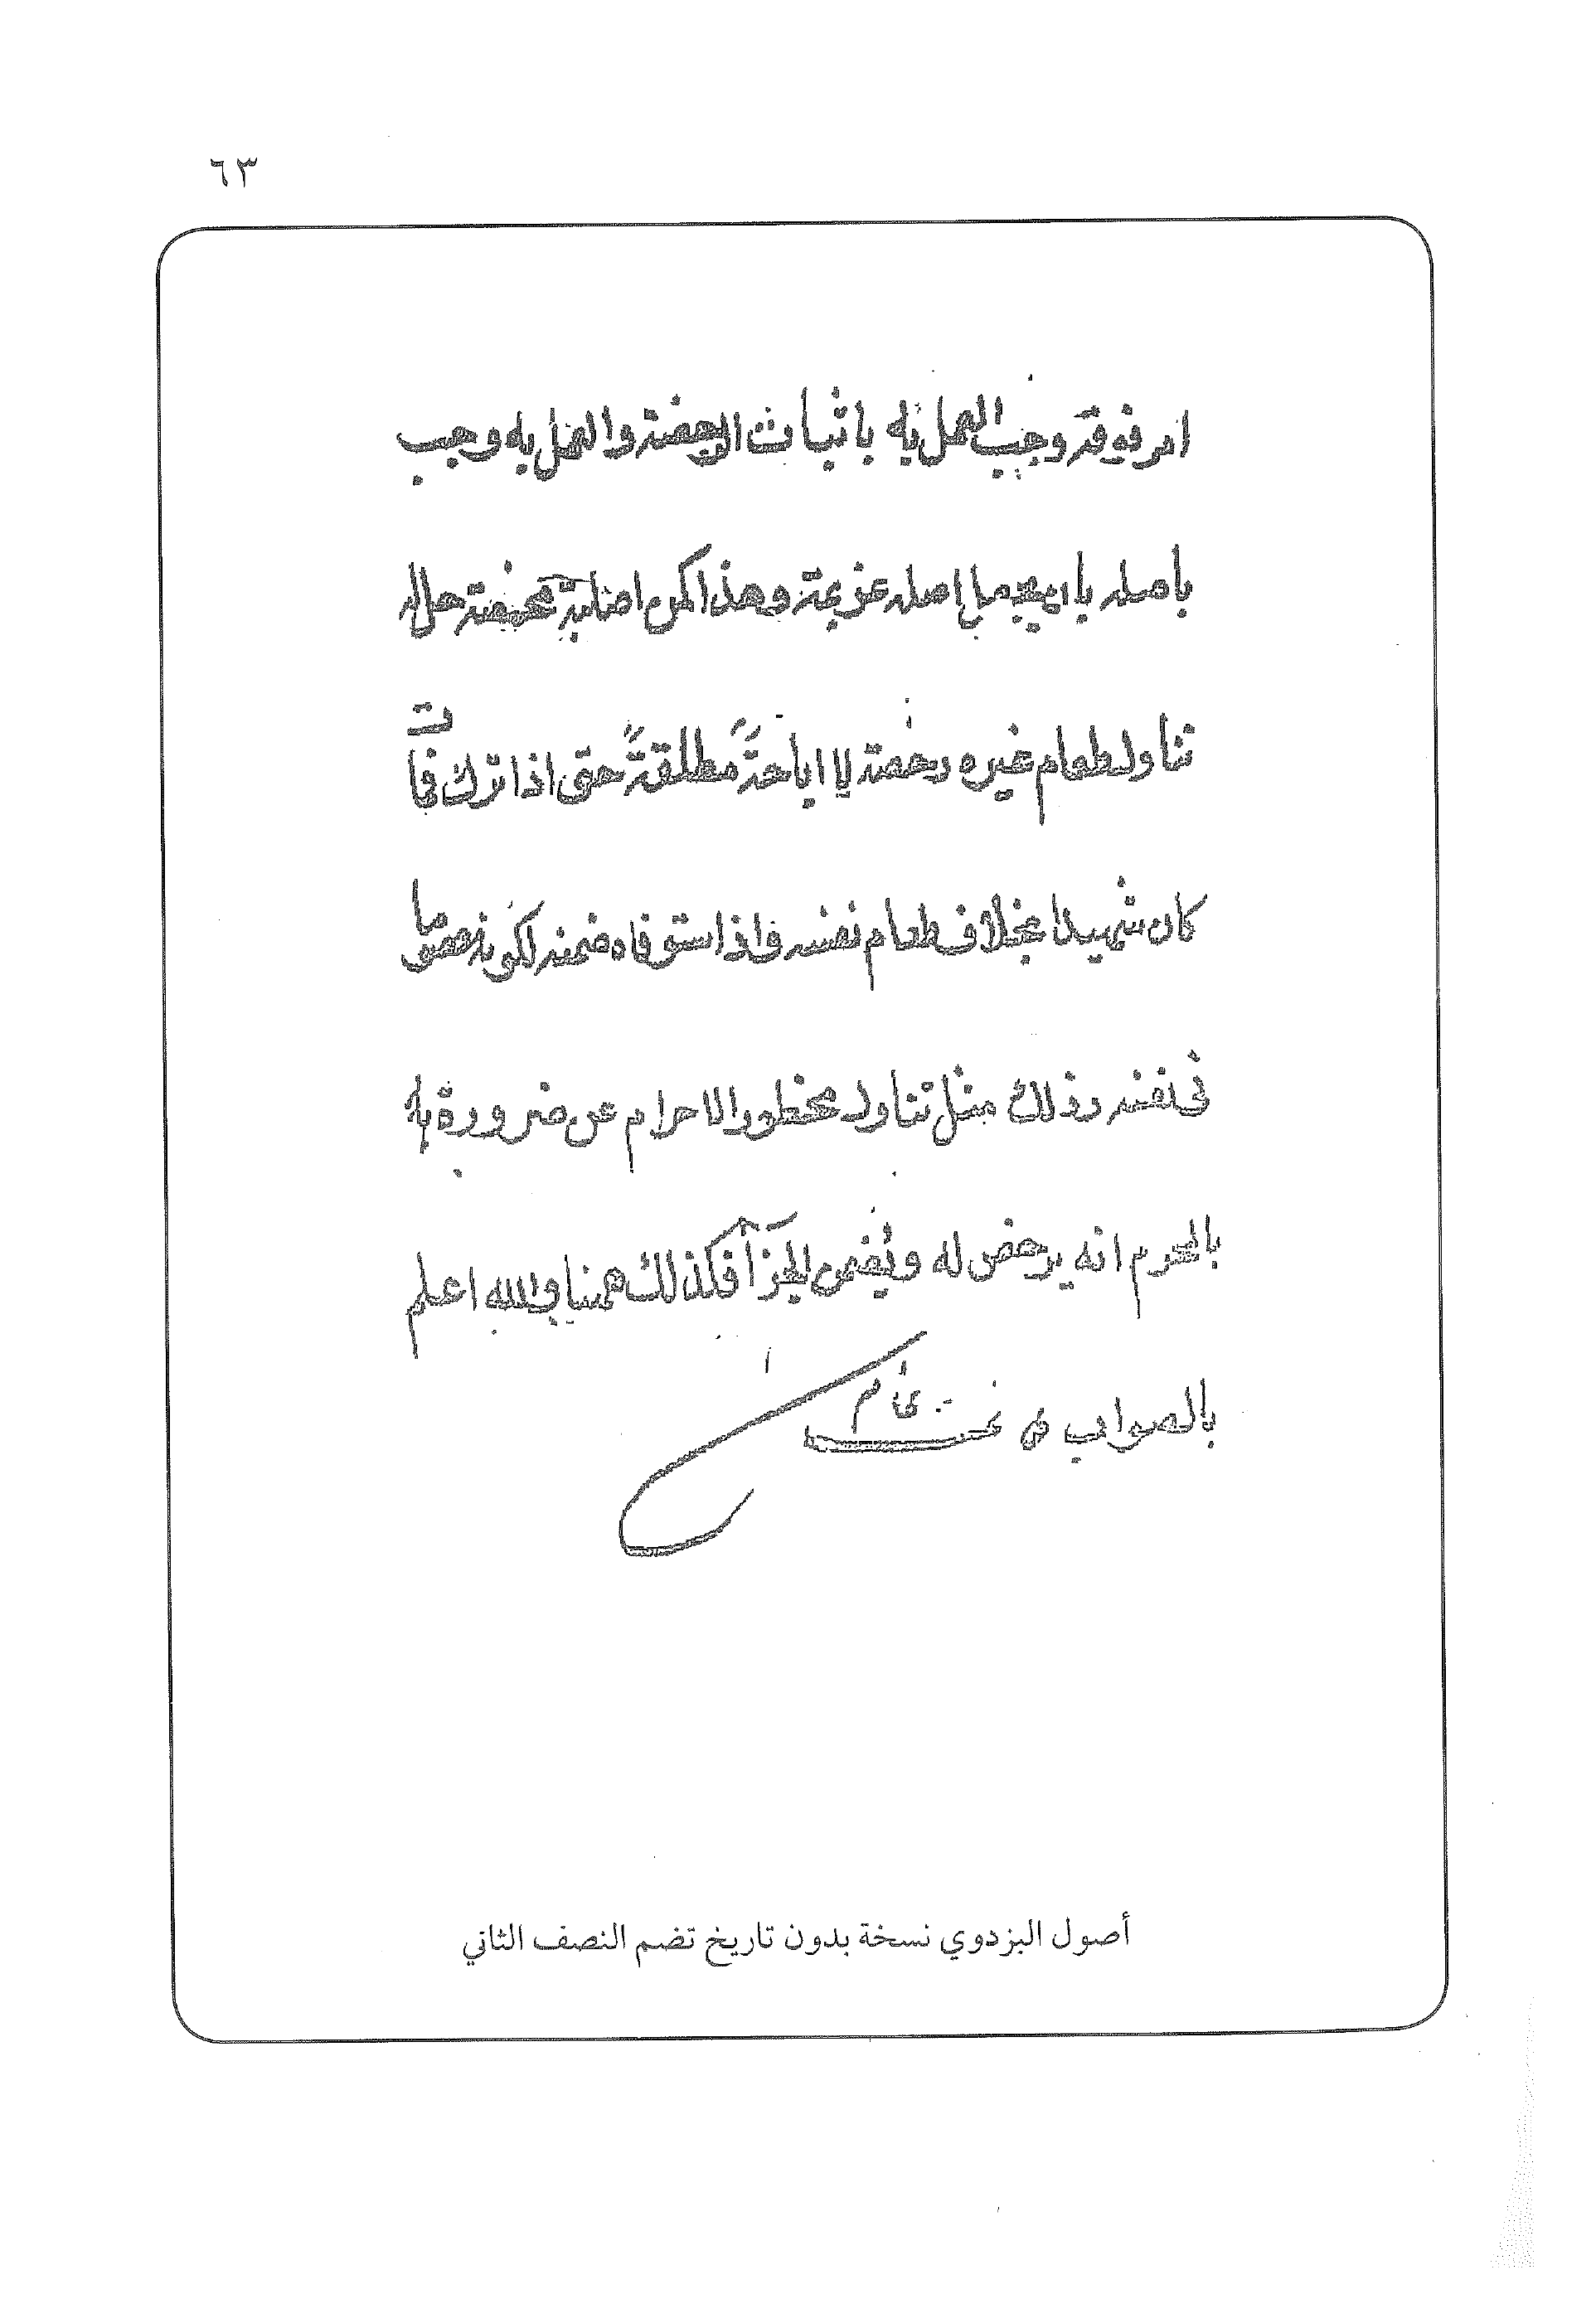 ٦٣
امر فوقه وجب العمل به باثبات الرخصة والعمل به وجب
باصله بان يجعل اصله عزيمة وهذا كمن اصابته مخمصة حل له
تناول طعام غيره رخصة لا اباحةً مطلقةً حتى اذا ترك فمات
كان شهيدا بخلاف طعام نفسه واذا استوفاه ضمنه لكونه معصوما
في نفسه وذلك مثل تناول محظور الاحرام عن ضرورة به
بالمحرم انه يرخص له ويُضمن الجزآ فكذلك ههنا والله اعلم
بالصواب تمت
أصول البزدوي نسخة بدون تاريخ تضم النصف الثاني